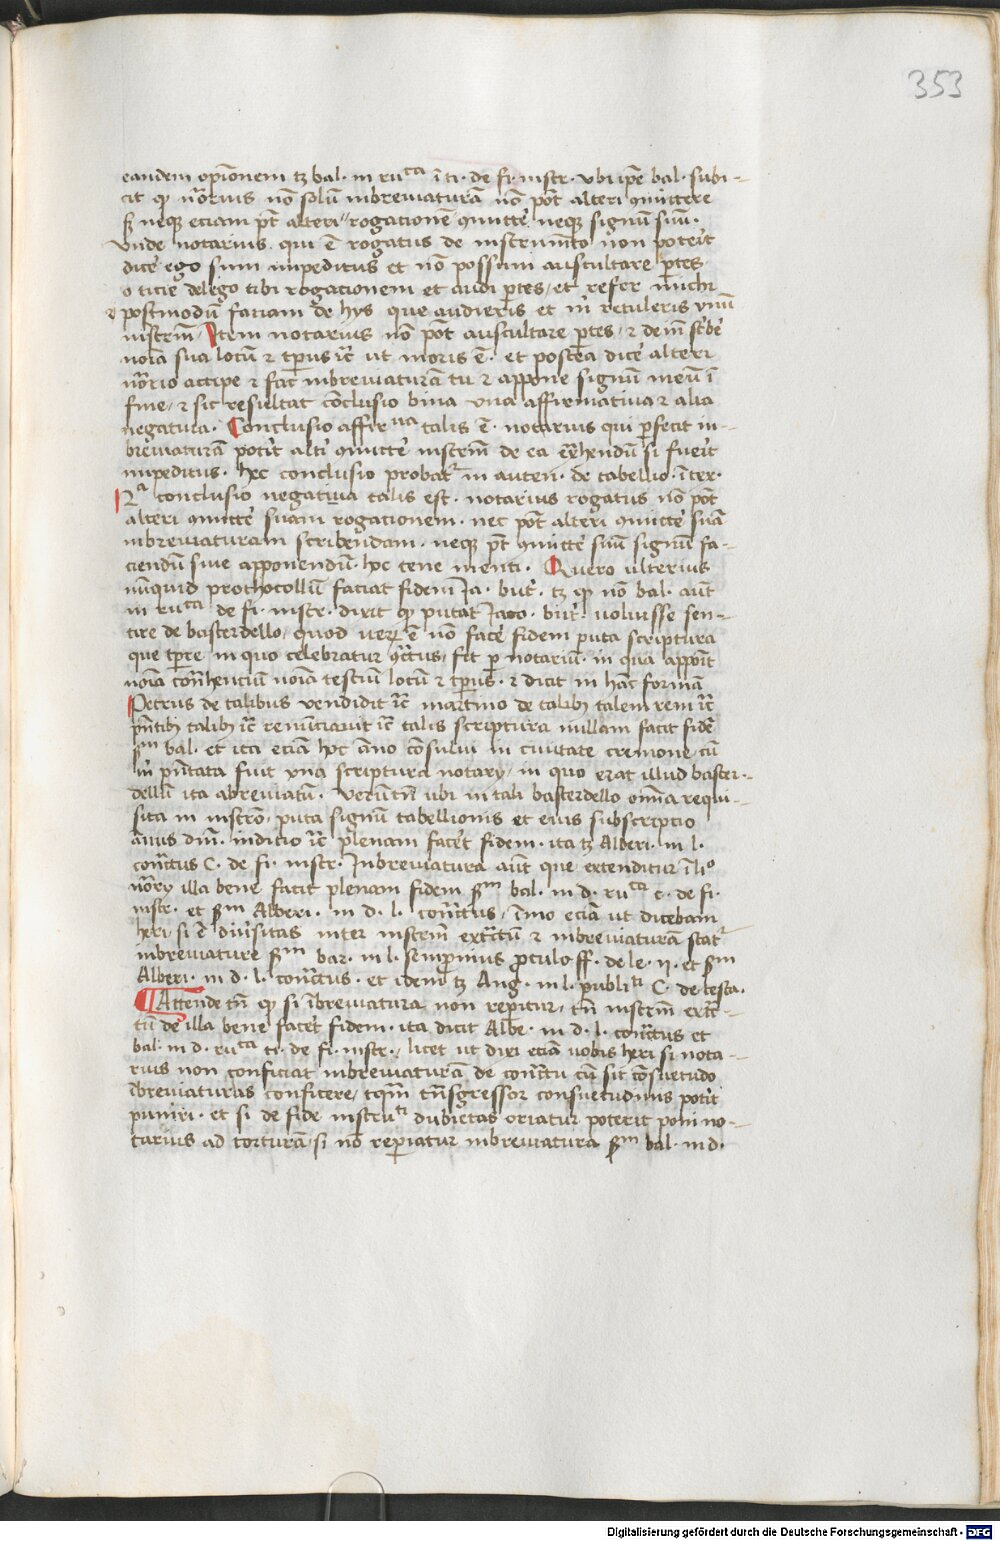 353
eandem opīonem tz bal. in ruᶜᵃ ī ti. de fi. instr. vbi ip̄e bal. subi-
cit qͥ nōrius nō solū inbreviaturā nō pōt alteri ɔmittere
sꝫ neqꝫ eciam pōt alteri rogacionē ɔmitte͛ neqꝫ signū suū.
vnde notarius qui ē rogatus de instrumēto non poteīt
dice͛ ego sum impeditus et nō possum auscultare ꝑtes
o ticie delego tibi rogacionem et audi ꝑtes, et refer michi
⁊ postmodū faciam de hys que audieris et m̄ retuleris vnū
instrm̄. Item notarius nō pōt auscultare ꝑtes, ⁊ dem̄ sc͛be͛
noīa sua locū ⁊ tp̄us ꝛc̄ ut moris ē. et postea dice͛ alteri
nōrio accipe ⁊ fac inbreviaturā tu ⁊ appone signū meū ī
fine, ⁊ sic resultat cōclusio bina vna affirmativa ⁊ alia
negatiua. Conclusio affirᵘᵃ talis ē. notarius qui ꝑfecit in-
breviaturā poti͛t alt͛i ɔmitte͛ instrm̄ de ea exͣhendū si fue͛it
impeditus. hec conclusio probatꝛ in auten. de tabellio. ī ter.
2ᵃ conclusio negativa talis est. notarius rogatus nō pōt
alteri ɔmitte͛ suam rogacionem. nec pōt alteri ɔmitte͛ suā
inbreviaturam scribendam. neqꝫ pōt ɔmitte͛ suū signū fa-
ciendū sive apponendū. hec tene menti. Quero ulterius
nūnquid prothocollū faciat fidem Ja. but͛. tz qͥ nō bal. aūt
in ruᶜᵃ de fi. instr. dixit qͥ putat Jaco. but͛. voluisse sen-
tire de basterdello, quod veꝝ ē nō face͛ fidem puta scriptura
que tp̄re in quo celebratur ɔͣctus, fit ꝑ notariū. in qua appoīt
noīa cōtͣhenciū noīa testiū locū ⁊ tp̄us. ⁊ dicit in hāc formā
Petrus de talibus vendidit ꝛc̄ martino de talibꝫ talem rem ꝛc̄
pn̄tibꝫ talibꝫ ꝛc̄ renūciavit ꝛc̄ talis scriptura nullam facit fidē
ẜᵐ bal. et ita eciā hoc āno cōsului in civitate cremone, cū
m̄ pn̄tata fuit vna scriptura notarij, in quo erat illud baster-
dellū ita abreviatū. verūtn̄ ubi in tali basterdello oīa requi-
sita in instrō, puta signū tabellionis et eius subscriptio
annus dn̄i. indictio ꝛc̄ plenam face͛t fidem. ita tz Alberi. in l.
conͣctus C. de fi. instr. Inbreviatura aūt que extenditur ī liº
nōrij illa bene facit plenam fidem ẜᵐ bal. in d. ruᶜᵃ c. de fi.
instr. et ẜᵐ Alberi. in d. l. conͣctus, īmo eciā ut dicebam
heri, si ē div͛sitas inter instrm̄ extͣctū ⁊ inbreviaturā statꝛ
inbreviature ẜᵐ bar. in l. sempronius proculo ff. de le. ij. et ẜᵐ
Alberi. in d. l. conͣctus. et idem tz Ang. in l. publiᵗⁱ C. de testa.
Attende tn̄ qͥ si ībreviatura non reꝑitur, tn̄ instrm̄ extͣc-
tū de illa bene face͛t fidem. ita dicit Albe. in d. l. conͣctus et
bal. in d. ruᶜᵃ ti. de fi. instr., licet ut dixi eciā vobis heri si nota-
rius non conficiat inbreviaturā de conͣctu cū sit cōsuetudo
ībreviaturas conficere, tqͣm tn̄sgressor consuetudinis poti͛t
puniri. et si de fide instruᵗⁱ dubietas oriatur poterit poni no-
tarius ad torturā, si nō reꝑiatur inbreviatura ẜᵐ bal. in d.
Digitalisierung gefördert durch die Deutsche Forschungsgemeinschaft - DFG